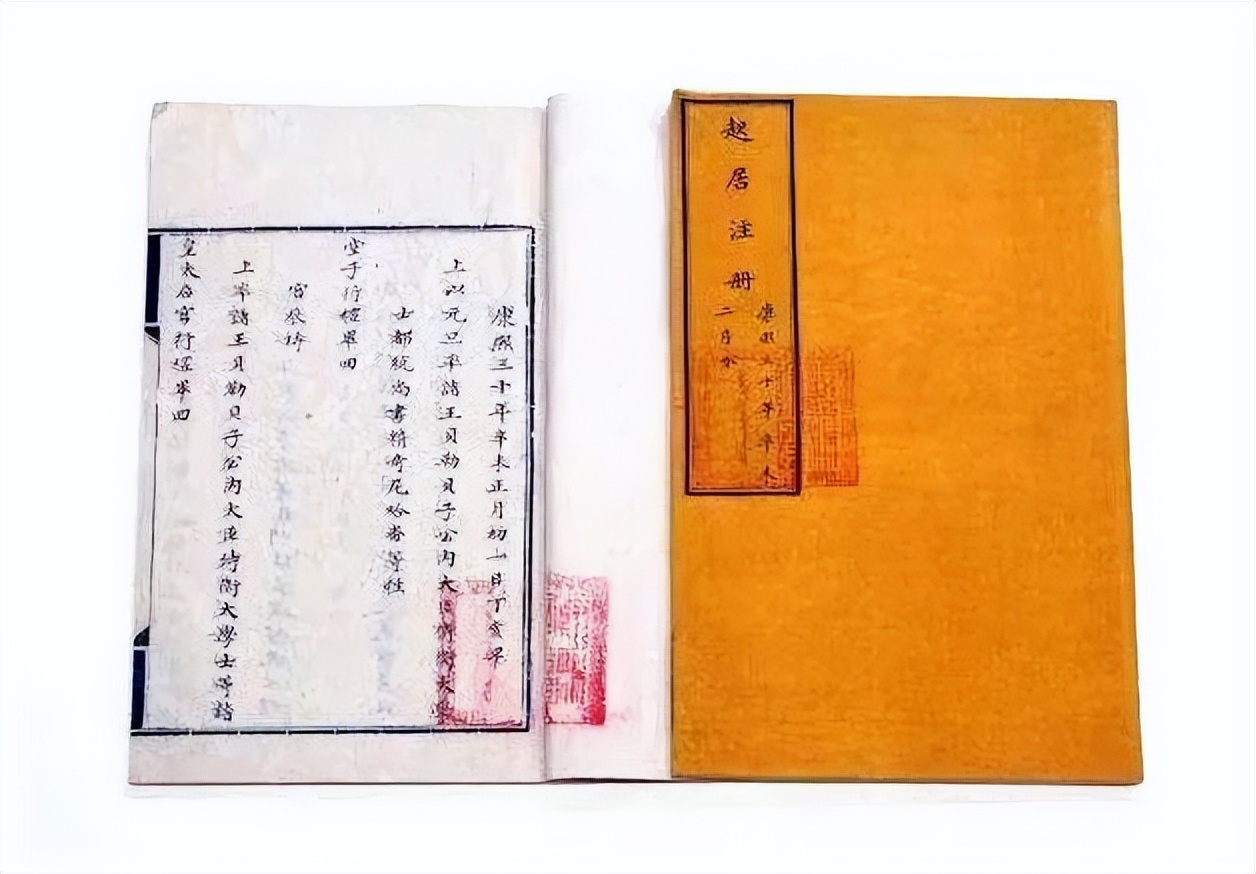 起居注册
康熙三十年辛未
二月分
康熙三十年辛未正月初一日丁亥早
上以元旦率諸王貝勒貝子公內大臣侍衛大學
士都統尚書精奇尼哈番等
堂子行禮畢回
宮
上率諸王貝勒貝子公內大臣侍衛大學士等詣
皇太后宮行禮畢回